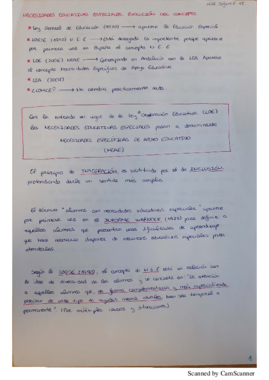 NECESIDADES EDUCATIVAS ESPECIALES. EVOLUCIÓN DEL CONCEPTO
* Ley General de Educación (1970) → aparece la Educación Especial
* LOGSE (1990) N.E.E →
por primera vez en España el concepto N.E.E.
* LOE (2006) NEAE →
el concepto Necesidades Específicas de Apoyo Educativo
* LEA (2007)
* ¿LOMCE? → No cambia prácticamente nada.
Con la entrada en vigor de la Ley Orgánica Educativa (LOE)
las NECESIDADES EDUCATIVAS ESPECIALES pasan a denominarse
NECESIDADES ESPECÍFICAS DE APOYO EDUCATIVO
(NEAE)
El principio de es sustituido por el de
pretendiendo darle un sentido más amplio.
El término "alumnos con necesidades educativas especiales" aparece
por primera vez en el INFORME WARNOCK (1978) para definir a
aquellos alumnos que presentan unas dificultades de aprendizaje
que hace necesario disponer de recursos educativos especiales para
atenderlas.
Según la LOGSE (1990), el concepto de N.E.E está en relación con
la idea de diversidad de los alumnos y se concreta en: "la atención
a aquellos alumnos que, de forma complementaria y más especializada
precisan de otro tipo de ayudas menos usuales bien sea temporal o
permanente". (Por múltiples causas y situaciones)
Scanned by CamScanner